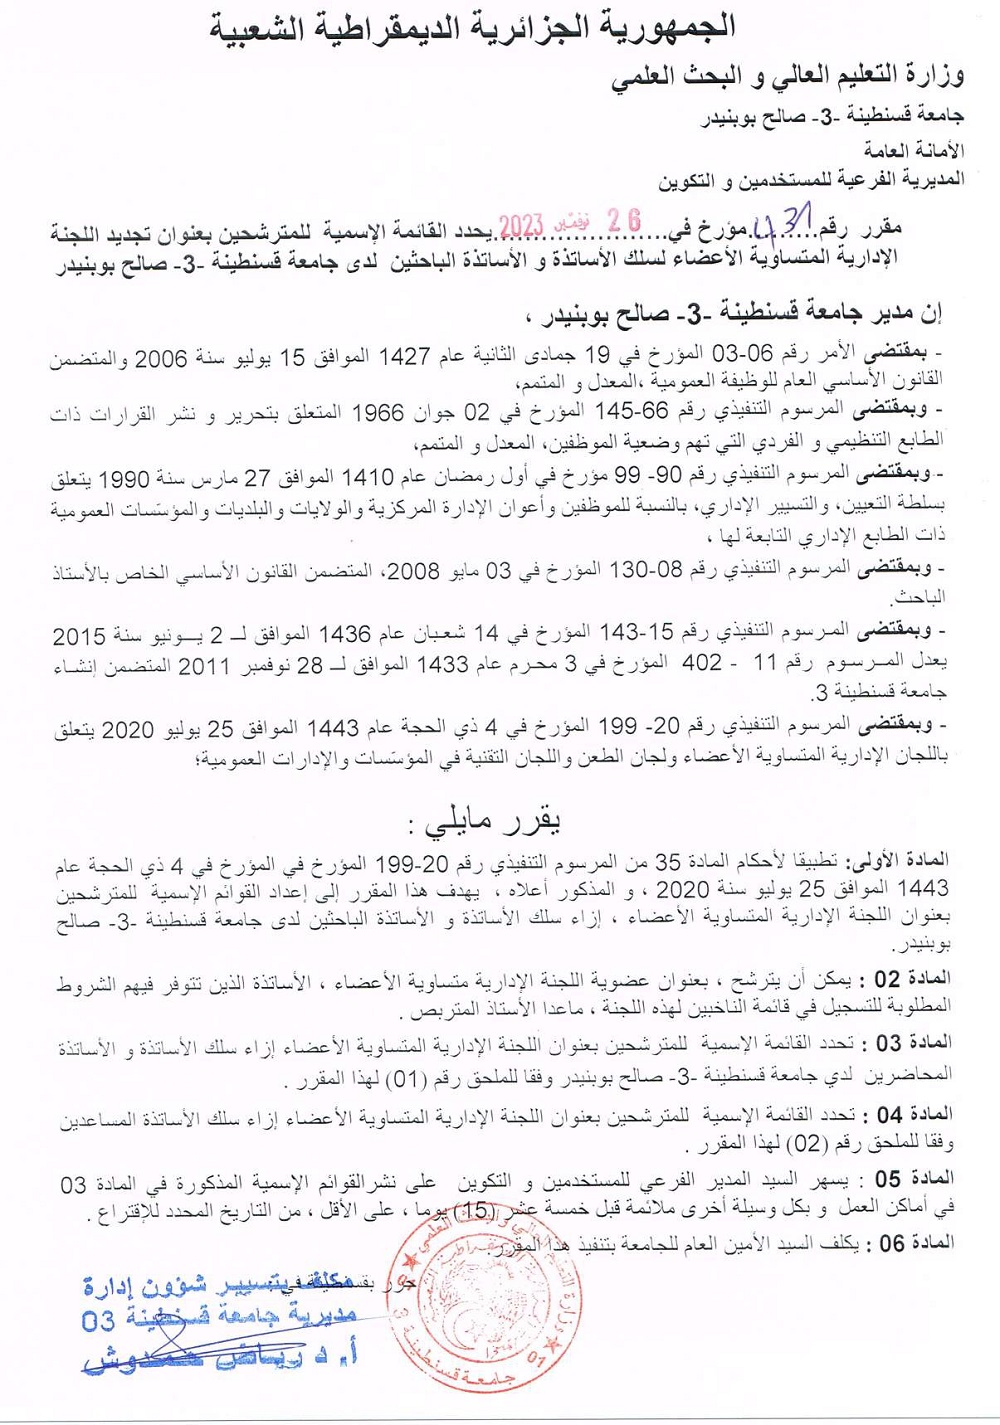 الجمهورية الجزائرية الديمقراطية الشعبية
وزارة التعليم العالي و البحث العلمي
جامعة قسنطينة -3- صالح بوبنيدر
الأمانة العامة
المديرية الفرعية للمستخدمين و التكوين
مقرر رقم 431 مؤرخ في 26 نوفمبر 2023 يحدد القائمة الإسمية للمترشحين بعنوان تجديد اللجنة
الإدارية المتساوية الأعضاء لسلك الأساتذة و الأساتذة الباحثين لدى جامعة قسنطينة -3- صالح بوبنيدر
إن مدير جامعة قسنطينة -3- صالح بوبنيدر ،
- بمقتضى الأمر رقم 06-03 المؤرخ في 19 جمادى الثانية عام 1427 الموافق 15 يوليو سنة 2006 والمتضمن
القانون الأساسي العام للوظيفة العمومية ،المعدل و المتمم،
- وبمقتضى المرسوم التنفيذي رقم 66-145 المؤرخ في 02 جوان 1966 المتعلق بتحرير و نشر القرارات ذات
الطابع التنظيمي و الفردي التي تهم وضعية الموظفين، المعدل و المتمم،
- وبمقتضى المرسوم التنفيذي رقم 90- 99 مؤرخ في أول رمضان عام 1410 الموافق 27 مارس سنة 1990 يتعلق
بسلطة التعيين، والتسيير الإداري، بالنسبة للموظفين وأعوان الإدارة المركزية والولايات والبلديات والمؤسّسات العمومية
ذات الطابع الإداري التابعة لها ،
- وبمقتضى المرسوم التنفيذي رقم 08-130 المؤرخ في 03 مايو 2008، المتضمن القانون الأساسي الخاص بالأستاذ
الباحث.
- وبمقتضى المـرسوم التنفيذي رقم 15-143 المؤرخ في 14 شعـبان عام 1436 الموافق لــ 2 يـــونيو سنة 2015
يعدل المــرسـوم رقم 11 - 402 المؤرخ في 3 محـرم عام 1433 الموافق لــ 28 نوفمبر 2011 المتضمن إنشـاء
جامعة قسنطينة 3.
- وبمقتضى المرسوم التنفيذي رقم 20- 199 المؤرخ في 4 ذي الحجة عام 1443 الموافق 25 يوليو 2020 يتعلق
باللجان الإدارية المتساوية الأعضاء ولجان الطعن واللجان التقنية في المؤسّسات والإدارات العمومية؛
يقرر مايلي :
المادة الأولى: تطبيقا لأحكام المادة 35 من المرسوم التنفيذي رقم 20-199 المؤرخ في المؤرخ في 4 ذي الحجة عام
1443 الموافق 25 يوليو سنة 2020 ، و المذكور أعلاه ، يهدف هذا المقرر إلى إعداد القوائم الإسمية للمترشحين
بعنوان اللجنة الإدارية المتساوية الأعضاء ، إزاء سلك الأساتذة و الأساتذة الباحثين لدى جامعة قسنطينة -3- صالح
بوبنيدر.
المادة 02 : يمكن أن يترشح ، بعنوان عضوية اللجنة الإدارية متساوية الأعضاء ، الأساتذة الذين تتوفر فيهم الشروط
المطلوبة للتسجيل في قائمة الناخبين لهذه اللجنة ، ماعدا الأستاذ المتربص .
المادة 03 : تحدد القائمة الإسمية للمترشحين بعنوان اللجنة الإدارية المتساوية الأعضاء إزاء سلك الأساتذة و الأساتذة
المحاضرين لدي جامعة قسنطينة -3- صالح بوبنيدر وفقا للملحق رقم (01) لهذا المقرر .
المادة 04 : تحدد القائمة الإسمية للمترشحين بعنوان اللجنة الإدارية المتساوية الأعضاء إزاء سلك الأساتذة المساعدين
وفقا للملحق رقم (02) لهذا المقرر .
المادة 05 : يسهر السيد المدير الفرعي للمستخدمين و التكوين على نشرالقوائم الإسمية المذكورة في المادة 03
في أماكن العمل و بكل وسيلة أخرى ملائمة قبل خمسة عشر (15) يوما ، على الأقل ، من التاريخ المحدد للإقتراع .
المادة 06 : يكلف السيد الأمين العام للجامعة بتنفيذ هذا المقرر.
حرر بقسنطينة في
مكلف بتسيير شؤون إدارة
مديرية جامعة قسنطينة 03
أ. د رياض حمدوش
جامعة قسنطينة 3
01